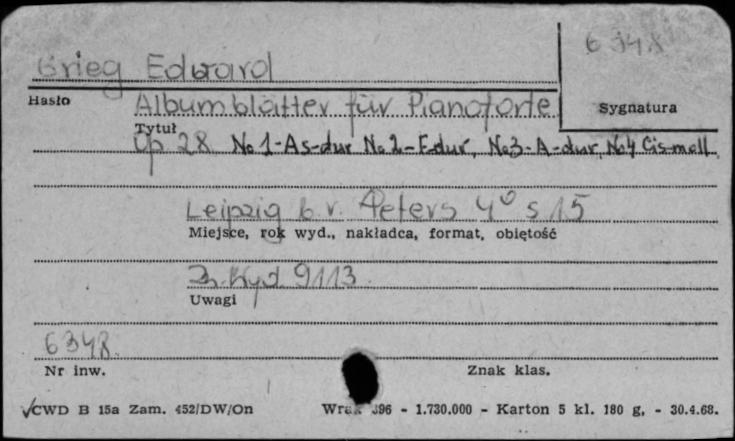 6348
Grieg Edward
Hasło
Albumblätter für Pianoforte
Sygnatura
Tytuł
Op 28 No 1-As-dur No 2-F-dur, No 3-A-dur, No 4 Cis-moll
Leipzig b.r. Peters 4° s 15
Miejsce, rok wyd., nakładca, format, objętość
Zn. Wyd. 9113
Uwagi
6348.
Nr inw.
Znak klas.
CWD B 15a Zam. 452/DW/On
396 - 1.730.000 - Karton 5 kl. 180 g, - 30.4.68.